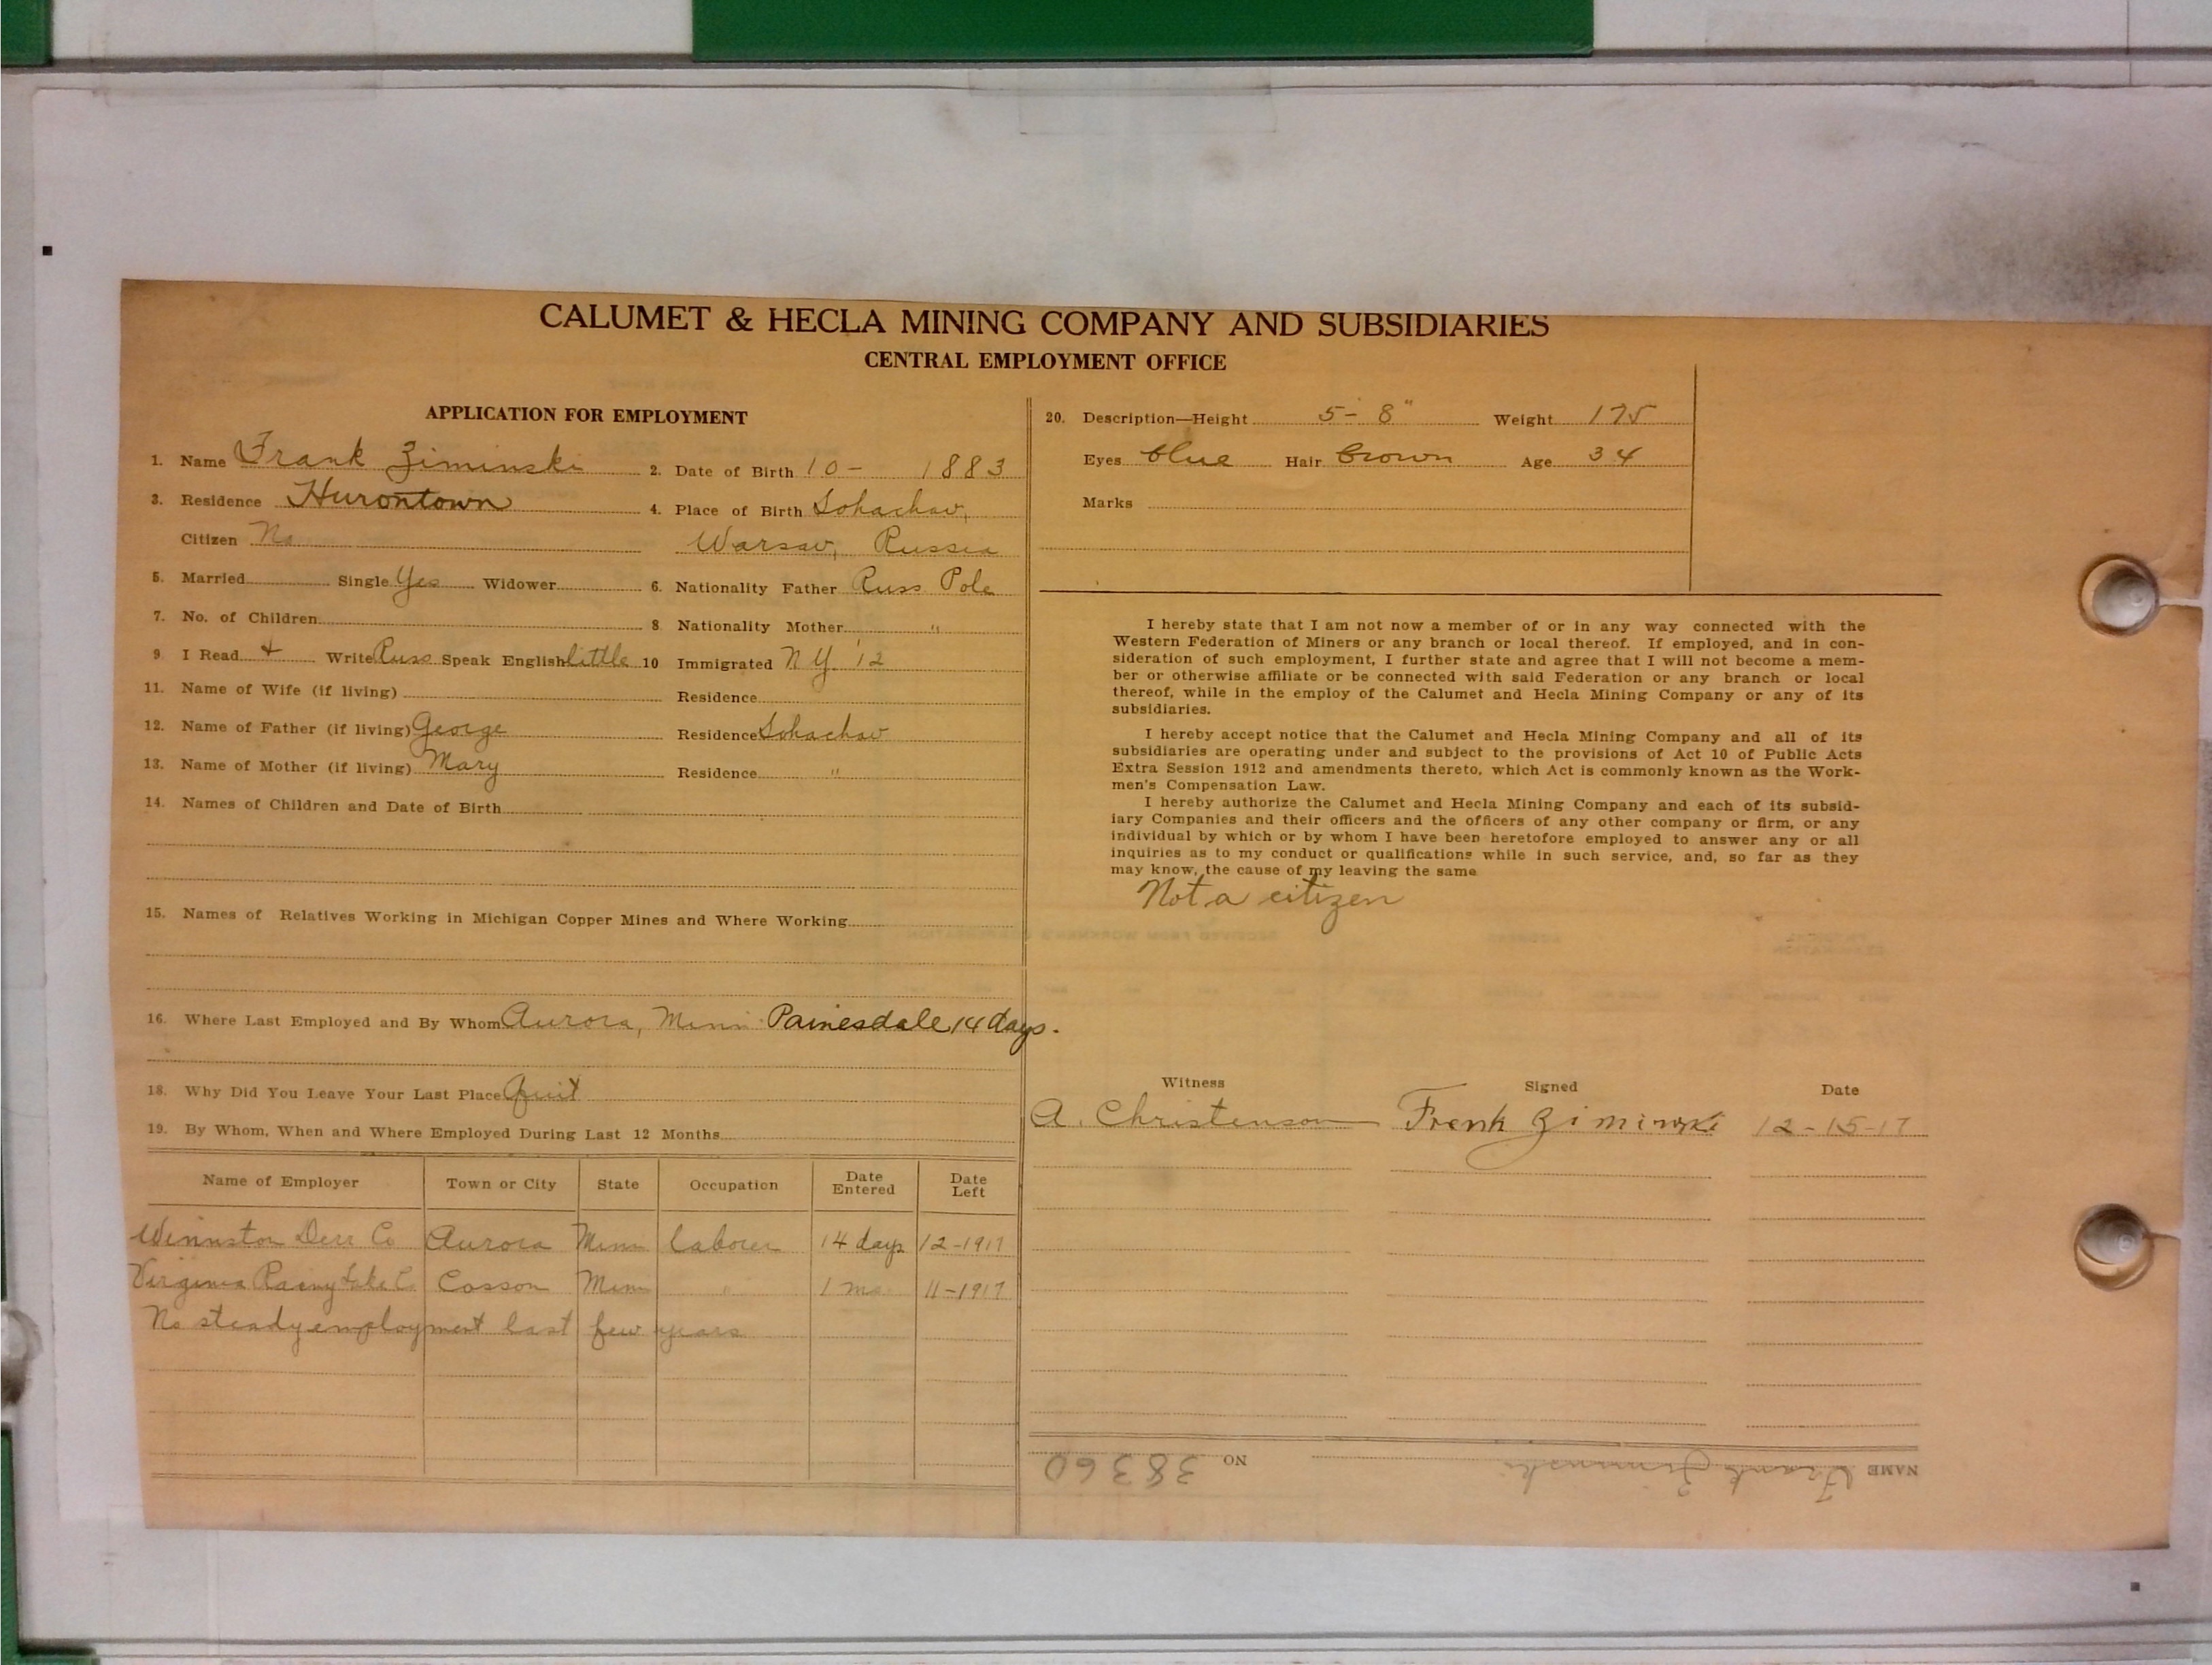 CALUMET & HECLA MINING COMPANY AND SUBSIDIARIES
CENTRAL EMPLOYMENT OFFICE
APPLICATION FOR EMPLOYMENT
1. Name Frank Ziminski 2. Date of Birth 10- 1883
3. Residence Hurontown 4. Place of Birth Sohachav,
Citizen No Warsaw, Russia
5. Married Single Yes Widower 6. Nationality Father Russ Pole
7. No. of Children 8 Nationality Mother "
9 I Read + Write Russ Speak English little 10 Immigrated N Y. '12
11. Name of Wife (if living) Residence
12. Name of Father (if living) George Residence Sohachav
13. Name of Mother (if living) Mary Residence "
14. Names of Children and Date of Birth
15. Names of Relatives Working in Michigan Copper Mines and Where Working
16. Where Last Employed and By Whom Aurora, Minn Painesdale 14 days.
18. Why Did You Leave Your Last Place Quit
19. By Whom, When and Where Employed During Last 12 Months
Name of Employer Town or City State Occupation Date Entered Date Left
Winnston Derr Co Aurora Minn laborer 14 days 12-1917
Virginia Rainy Lake Co Cosson Minn " 1 mo. 11-1917
No steady employment last few years
20. Description—Height 5- 8" Weight 175
Eyes blue Hair brown Age 34
Marks
I hereby state that I am not now a member of or in any way connected with the
Western Federation of Miners or any branch or local thereof. If employed, and in con-
sideration of such employment, I further state and agree that I will not become a mem-
ber or otherwise affiliate or be connected with said Federation or any branch or local
thereof, while in the employ of the Calumet and Hecla Mining Company or any of its
subsidiaries.
I hereby accept notice that the Calumet and Hecla Mining Company and all of its
subsidiaries are operating under and subject to the provisions of Act 10 of Public Acts
Extra Session 1912 and amendments thereto, which Act is commonly known as the Work-
men's Compensation Law.
I hereby authorize the Calumet and Hecla Mining Company and each of its subsid-
iary Companies and their officers and the officers of any other company or firm, or any
individual by which or by whom I have been heretofore employed to answer any or all
inquiries as to my conduct or qualifications while in such service, and, so far as they
may know, the cause of my leaving the same
Not a citizen
Witness Signed Date
A. Christenson Frenk Ziminski 12-15-17
NAME Frank Ziminski NO 38360